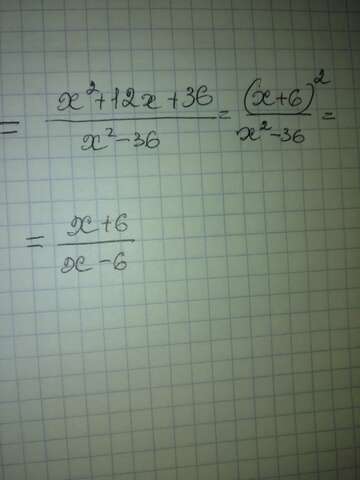 = (x² + 12x + 36)/(x² - 36) = (x+6)²/(x² - 36) =
= (x+6)/(x-6)